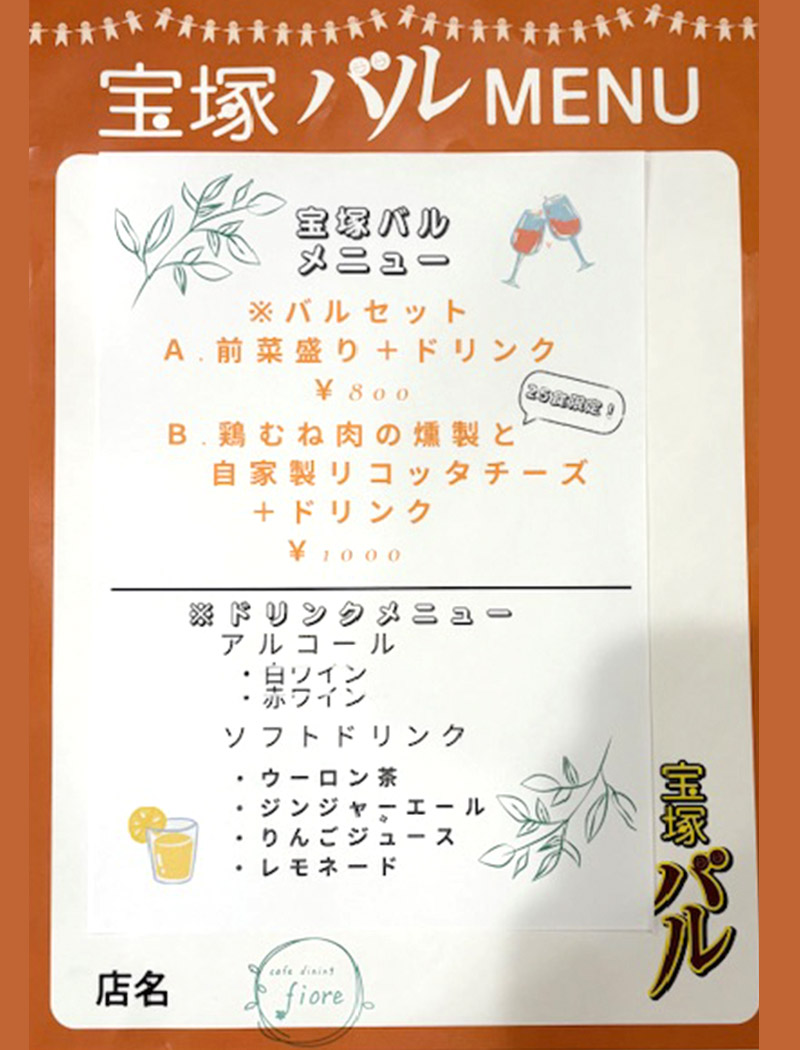 宝塚バル MENU
宝塚バル
メニュー
※バルセット
A.前菜盛り+ドリンク
¥800
25食限定!
B.鶏むね肉の燻製と
自家製リコッタチーズ
+ドリンク
¥1000
※ドリンクメニュー
アルコール
・白ワイン
・赤ワイン
ソフトドリンク
・ウーロン茶
・ジンジャーエール
・りんごジュース
・レモネード
宝塚
バル
店名
cafe dining
fiore